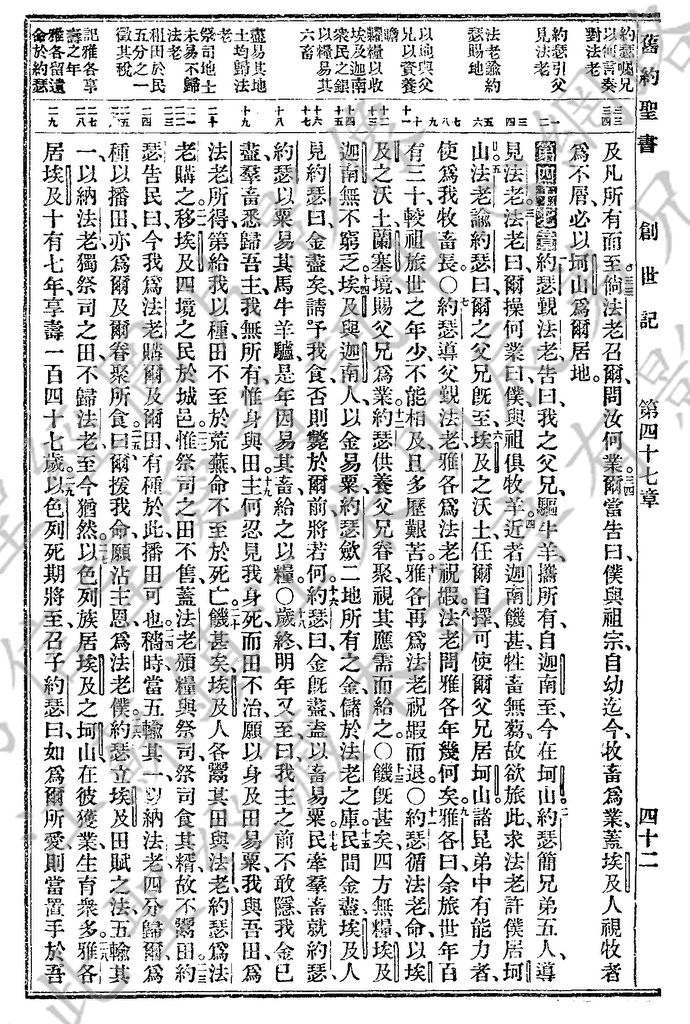 舊約聖書 創世記 第四十七章 四十二
約瑟囑兄
以何言奏
對法老
約瑟引父
見法老
法老諭約
瑟賜地
以地與父
兄以資養
贍
糧糗以收
埃及迦南
衆民之銀
以糧易其
六畜
盡易其地
土均歸法
老
祭司地土
未易不歸
法老
租田於民
五分之一
徵其稅
記雅各享
壽之年
雅各留遺
命於約瑟
及凡所有而至倘法老召爾問汝何業爾當告曰僕與祖宗自幼迄今牧畜爲業蓋埃及人視牧者
爲不屑必以坷山爲爾居地
第四十七章約瑟覲法老告曰我之父兄驅牛羊攜所有自迦南至今在坷山約瑟簡兄弟五人導
見法老法老曰爾操何業曰僕與祖俱牧羊近者迦南饑甚牲畜無芻故欲旅此求法老許僕居坷
山法老諭約瑟曰爾之父兄旣至埃及之沃土任爾自擇可使爾父兄居坷山諸昆弟中有能力者
使爲我牧畜長〇約瑟導父覲法老雅各爲法老祝嘏法老問雅各年幾何矣雅各曰余旅世年百
有三十較祖旅世之年少不能相及且多歷艱苦雅各再爲法老祝嘏而退〇約瑟循法老命以埃
及之沃土蘭塞境賜父兄爲業約瑟供養父兄眷聚視其應需而給之〇饑旣甚矣四方無糧埃及
迦南無不窮乏埃及與迦南人以金易粟約瑟斂二地所有之金儲於法老之庫民間金盡埃及人
見約瑟曰金盡矣請予我食否則斃於爾前將若何約瑟曰金旣盡盍以畜易粟民牽羣畜就約瑟
約瑟以粟易其馬牛羊驢是年因易其畜給之以糧〇歲終明年又至曰我主之前不敢隱我金已
盡羣畜悉歸吾主我無所有惟身與田主何忍見我身死而田不治願以身及田易粟我與吾田爲
法老所得第給我以種田不至於荒蕪命不至於死亡饑甚矣埃及人各鬻其田與法老約瑟爲法
老購之移埃及四境之民於城邑惟祭司之田不售蓋法老頒糧與祭司祭司食其糈故不鬻田約
瑟告民曰今我爲法老購爾及爾田有種於此播田可也穡時當五輸其一以納法老四分歸爾爲
種以播田亦爲爾及爾眷聚所食曰爾援我命願沾主恩爲法老僕約瑟立埃及田賦之法五輸其
一以納法老獨祭司之田不歸法老至今猶然以色列族居埃及之坷山在彼獲業生育衆多雅各
居埃及十有七年享壽一百四十七歲以色列死期將至召子約瑟曰如爲爾所愛則當置手於吾